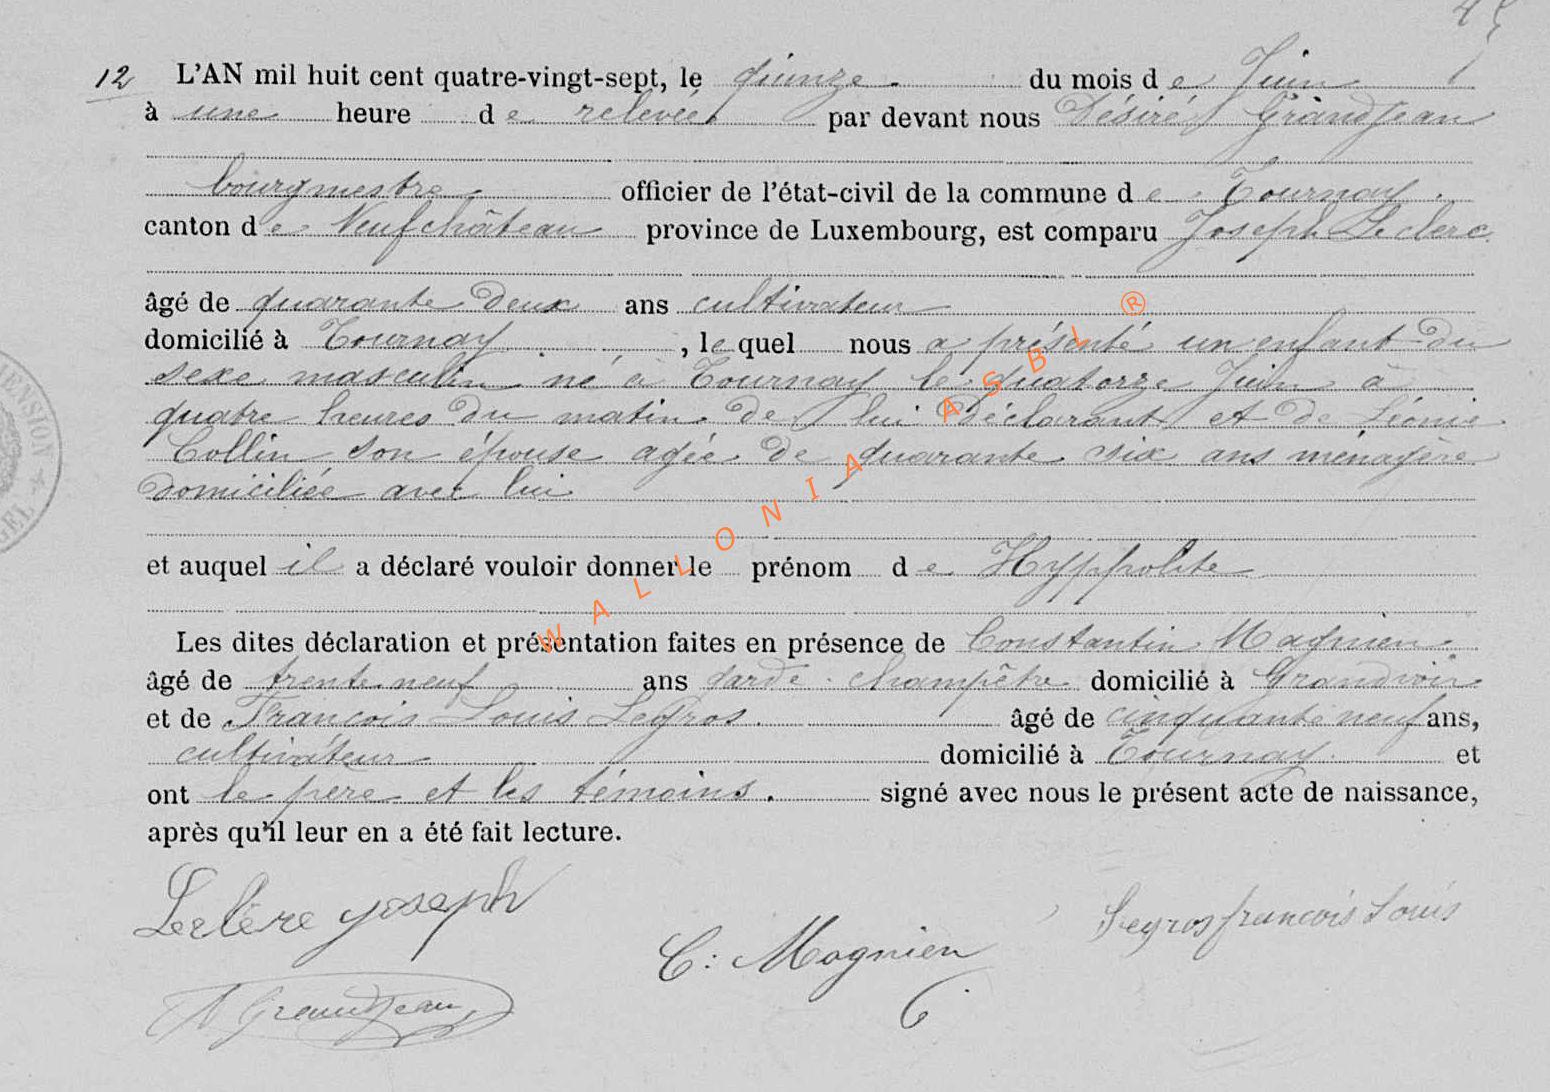 45
12 L'AN mil huit cent quatre-vingt-sept, le quinze du mois de Juin
à une heure de relevée par devant nous Désiré Grandjean
bourgmestre officier de l'état-civil de la commune de Tournay.
canton de Neufchâteau province de Luxembourg, est comparu Joseph Leclerc
âgé de quarante deux ans cultivateur
domicilié à Tournay, lequel nous a présenté un enfant du
sexe masculin né à Tournay le quatorze Juin à
quatre heures du matin de lui déclarant et de Léonie
Collin son épouse agée de quarante six ans ménagère
domiciliée avec lui
et auquel il a déclaré vouloir donner le prénom de Hyppolite
Les dites déclaration et présentation faites en présence de Constantin Magnien
âgé de trente neuf ans garde champêtre domicilié à Grandvoir
et de François Louis Legros. âgé de cinquante neuf ans,
cultivateur domicilié à Tournay. et
ont le père et les témoins. signé avec nous le présent acte de naissance,
après qu'il leur en a été fait lecture.
Leclère joseph
C: Magnien
Legros francois Louis
Grandjean
WALLONIA ASBL ®